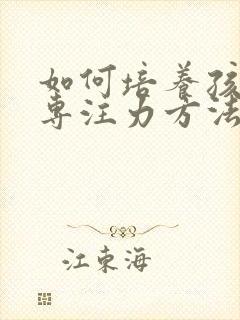 如何培养孩
专注力方法
江东海